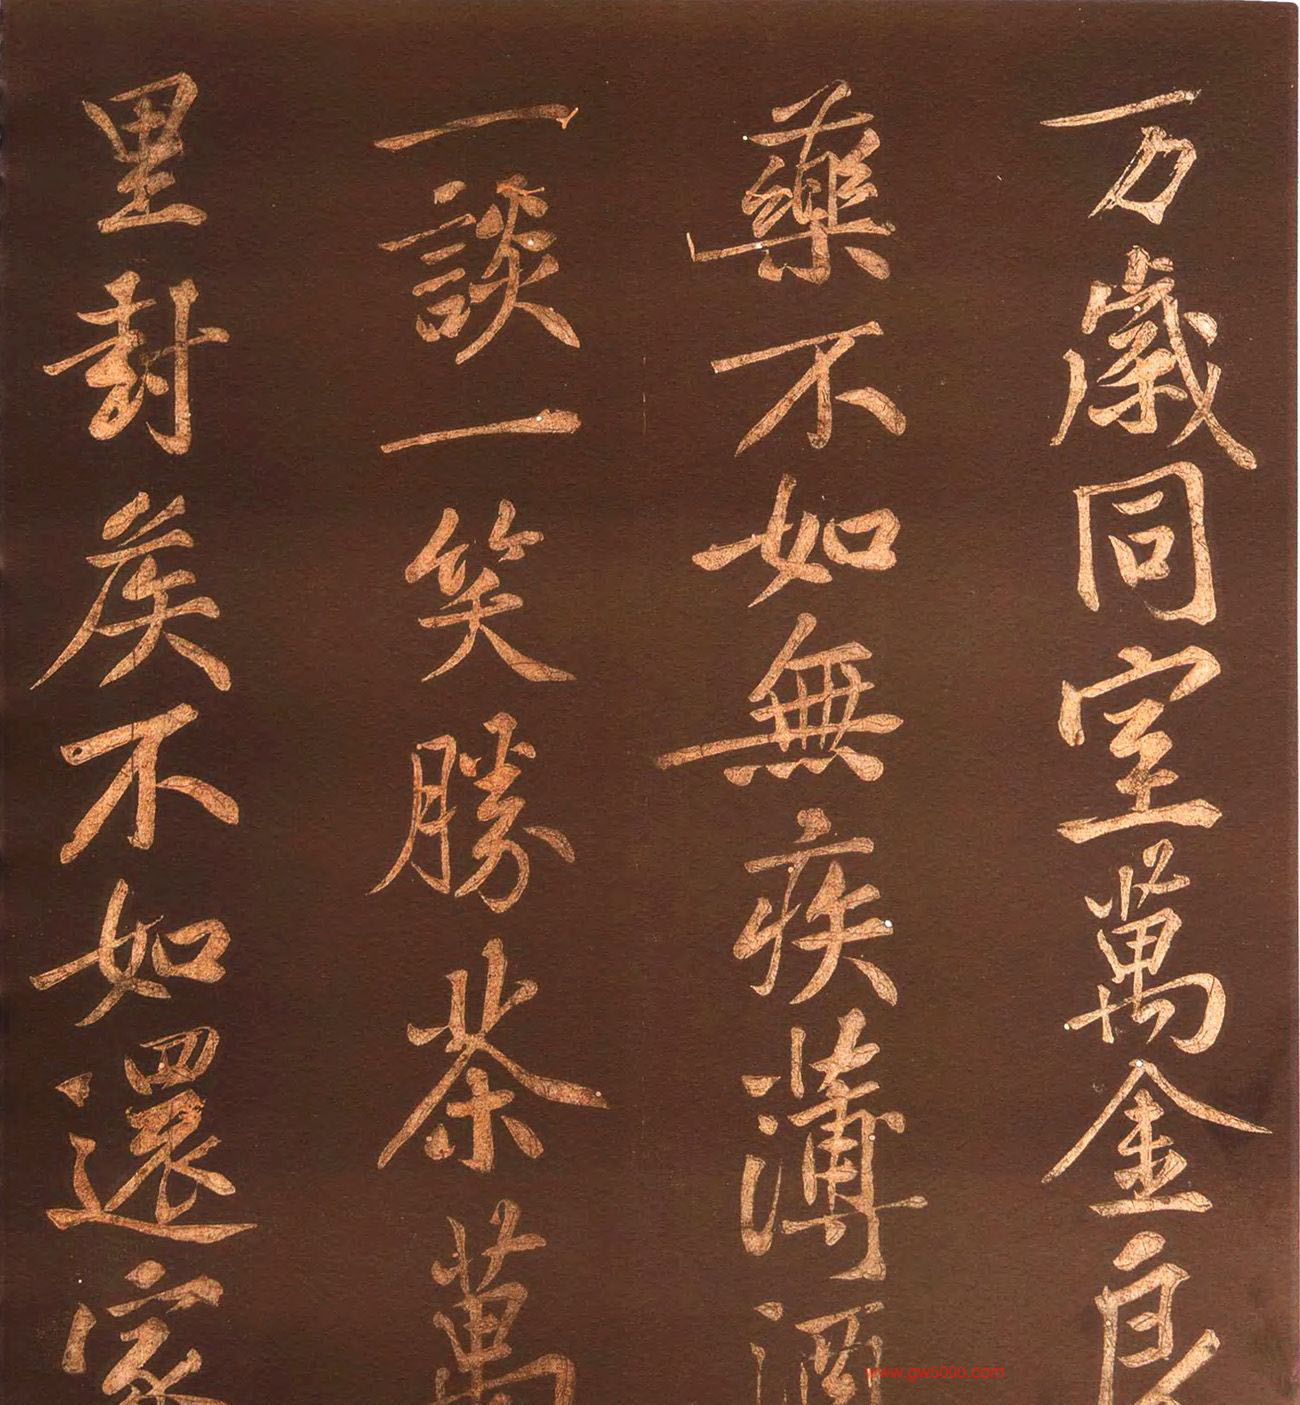 万歲同室萬金良
藥不如無疾薄酒
一談一笑勝茶萬
里封矦不如還家
www.gw5000.com